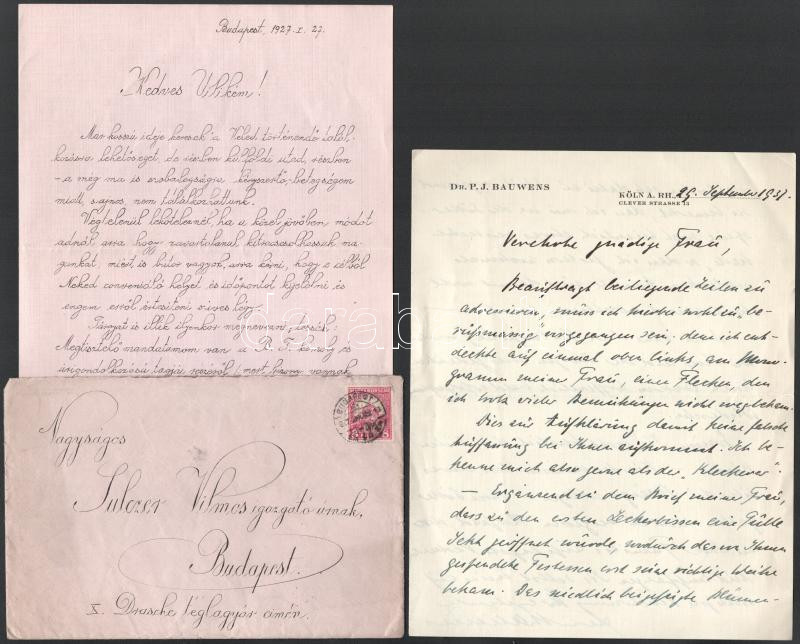 Budapest, 1927. I. 27.
Kedves Vilikém!
Már hosszú ideje keresek a Veled történendő talál-
kozásra lehetőséget, de részben külföldi utad, részben
- a még ma is szobafogságra kényszerítő - betegségem
miatt, sajnos nem találkozhattunk.
Végtelenül leköteleznél, ha a közel jövőben módot
adnál arra, hogy zavartalanul kitracsolhassuk ma-
gunkat, miért is bátor vagyok arra kérni, hogy e célból
Neked conveniáló helyet és időpontot kijelölni és
engem erről értesíteni szíves légy.
Tárgyat is illik ilyenkor megnevezni, tessék:
Megtisztelő mandátumom van a B. T. komoly és
úrigondolkozású tagjai részéről (most
Nagyságos
Sulczer Vilmos igazgató úrnak,
Budapest.
X. Drasche téglagyár címén.
DR. P. J. BAUWENS
KÖLN A. RH., 29. September 1937.
CLEVER STRASSE 13
Verehrte gnädige Frau,
Beauftragt beiliegende Zeilen zu
adressieren, muss ich hierbei wohl zu „be-
rufsmässig“ vorgegangen sein, denn ich ent-
deckte auf einmal oben links, am Mono-
gramm meiner Frau, einen Flecken, den
ich trotz vieler Bemühungen nicht wegbekam.
Dies zur Aufklärung damit keine falsche
Auffassung bei Ihnen aufkommt. Ich be-
kenne mich also gerne als der „Kleckerer“.
— Ergänzend zu dem Brief meiner Frau,
dass zu den ersten Leckerbissen eine Pulle
Sekt geöffnet wurde, wodurch das von Ihnen
gespendete Festessen erst seine richtige Weihe
bekam. Das niedlich beigefügte Blumen-
darabanth.com